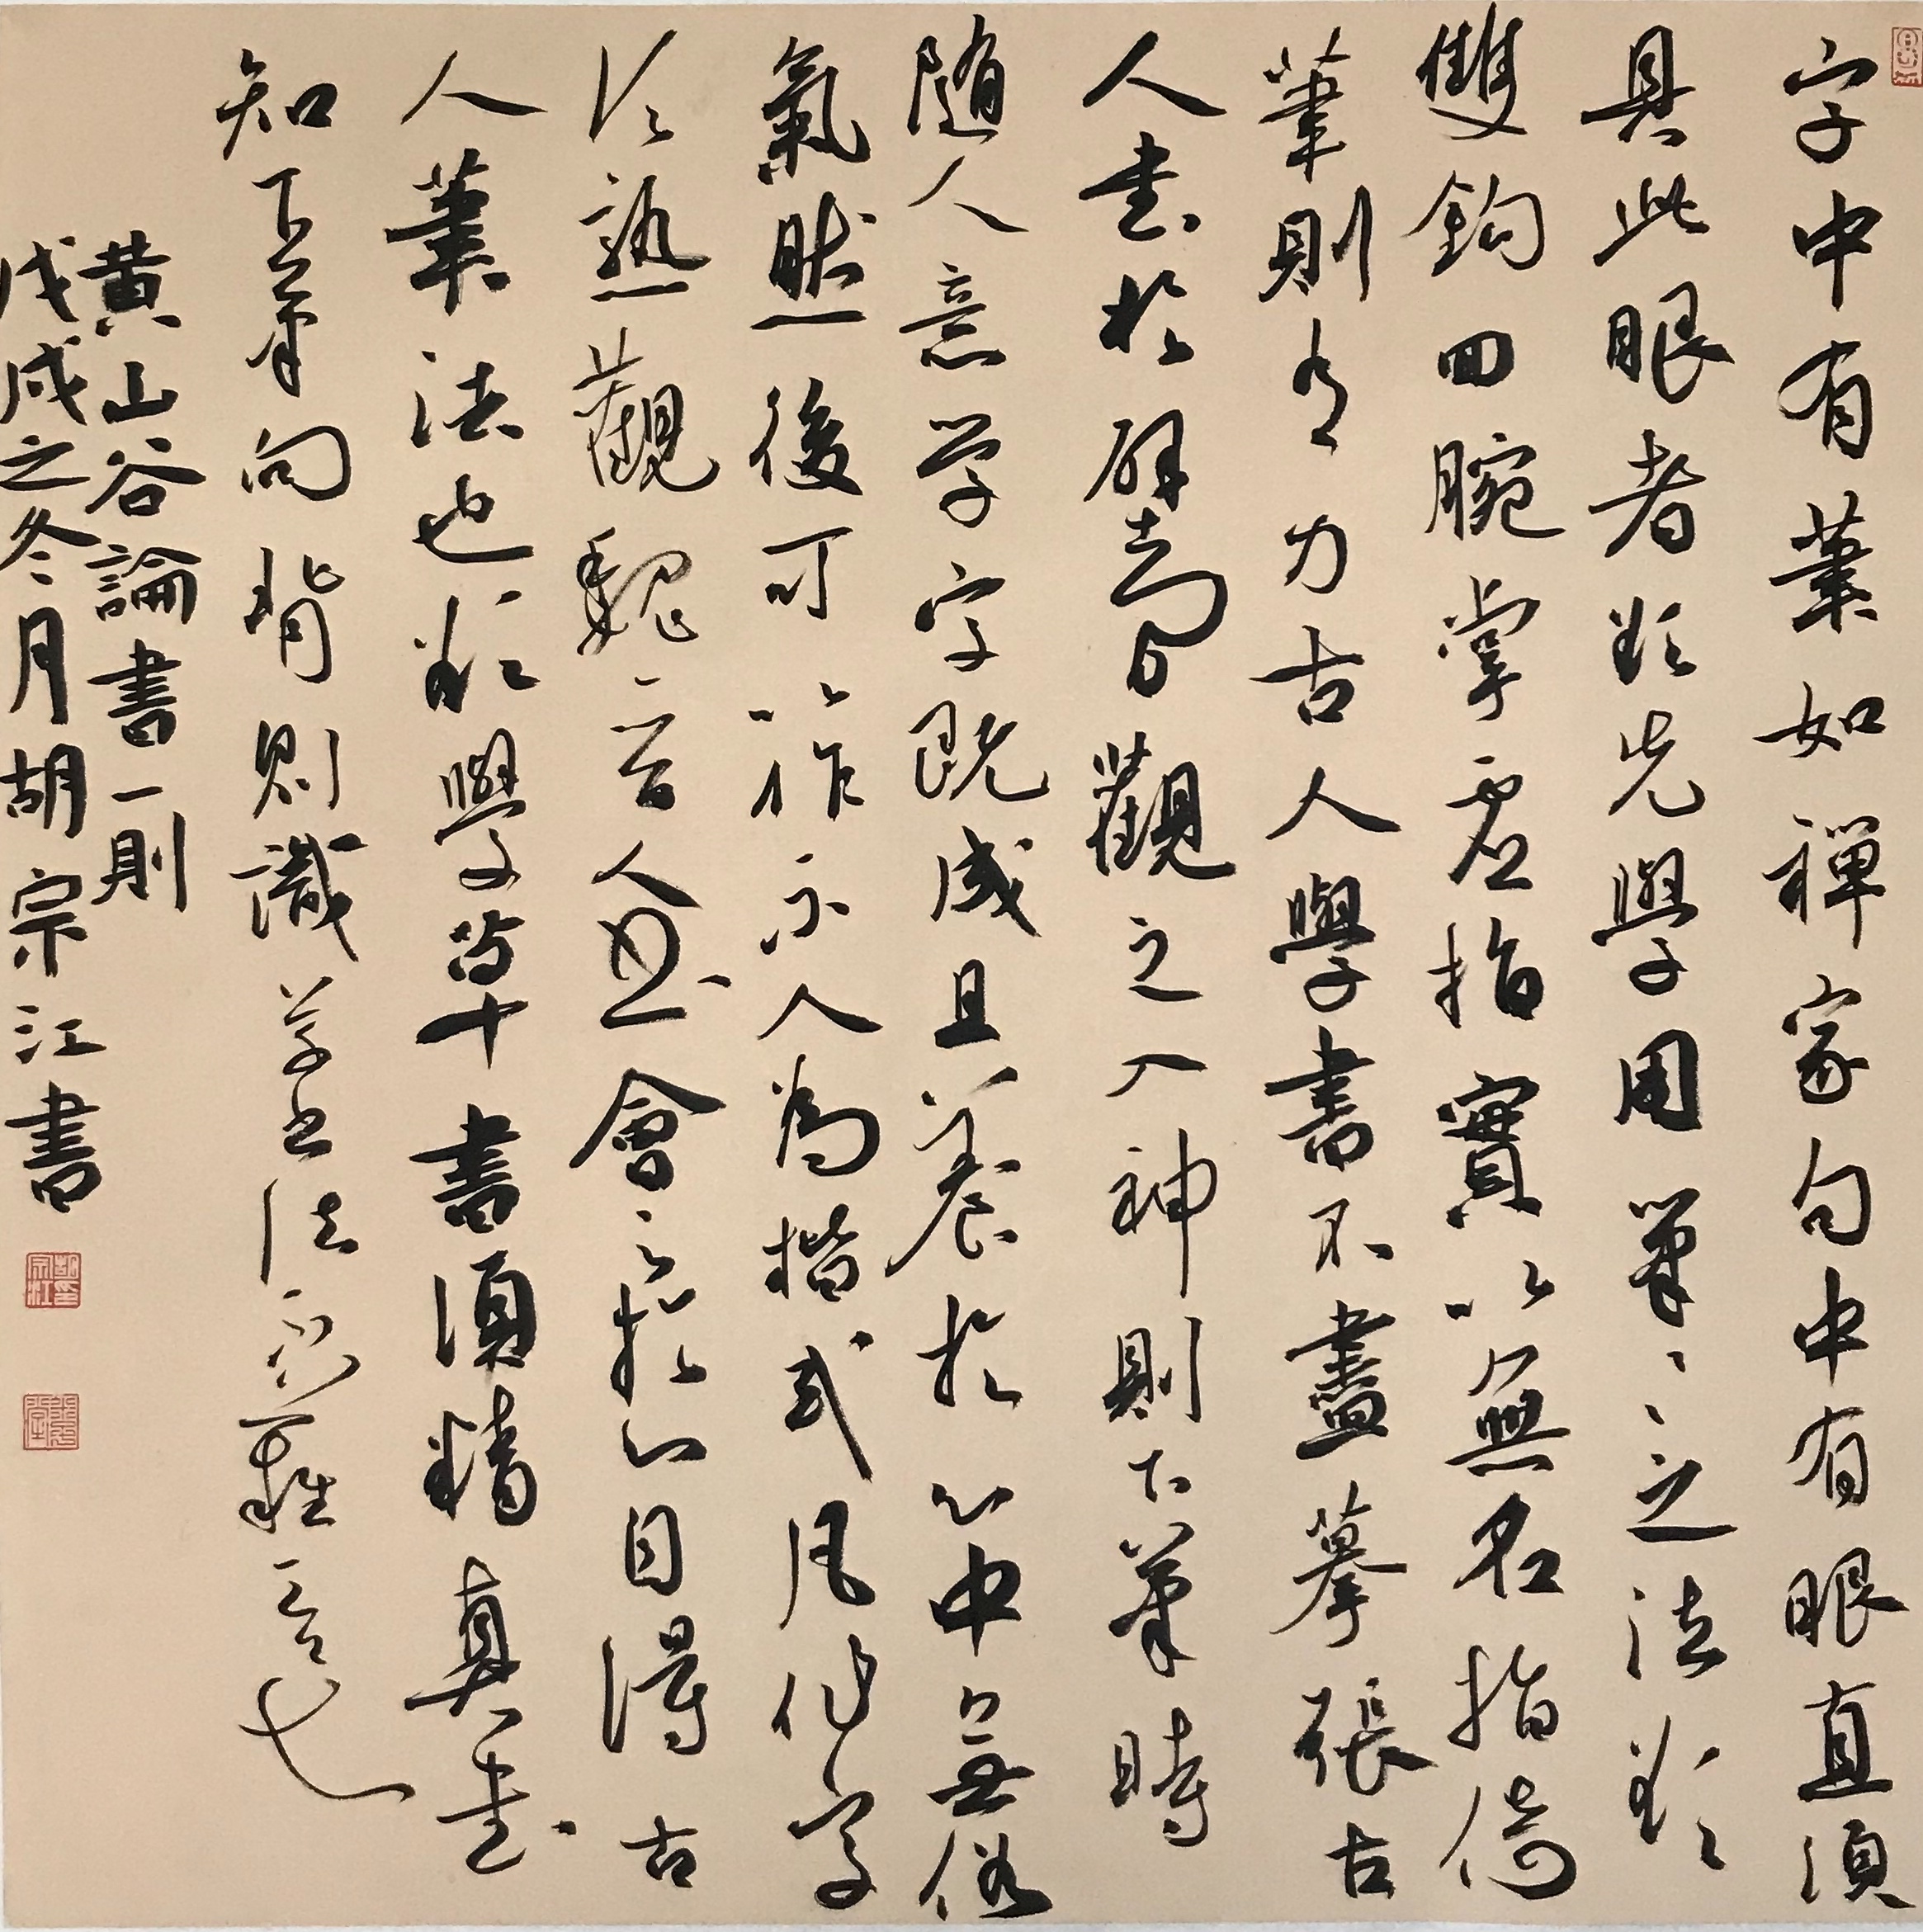 字中有筆如禪家句中有眼直須
具此眼者欲先學用筆〻之法欲
雙鉤回腕掌虛指實以無名指倚
筆則有力古人學書不盡摹張古
人書於壁間觀之入神則下筆時
隨人意学字既成且養於心中無俗
氣然後可以作示人為楷式凡作字
須熟觀魏晉人書會之於心自得古
人筆法也欲學草書須精真書
知下筆向背則識草書法不難工也
黄山谷論書一則
戊戌之冬月胡宗江書